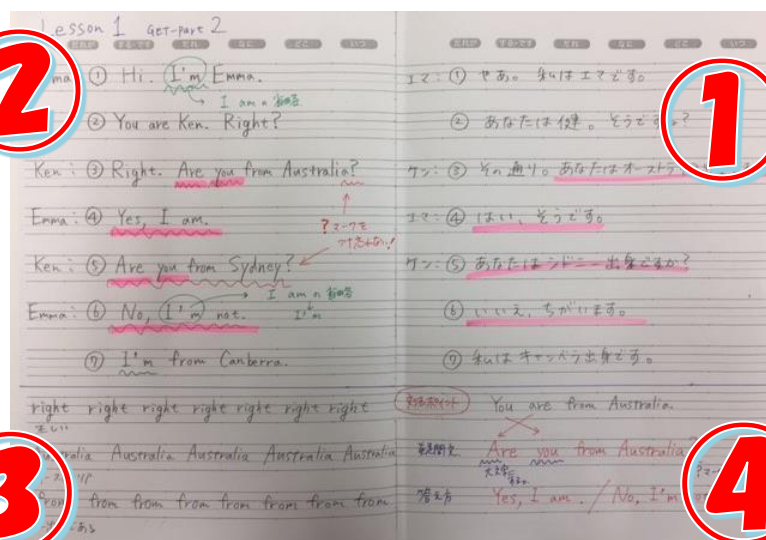 Lesson 1 GET-part 2
だれが する・です だれ なに どこ いつ
2
ma ① Hi. I'm Emma.
I am の短縮系
② You are Ken. Right?
Ken: ③ Right. Are you from Australia?
Emma: ④ Yes, I am.
?マークを
つけ忘れない!
Ken: ⑤ Are you from Sydney?
I am の短縮系
Emma: ⑥ No, I'm not.
I'm
⑦ I'm from Canberra.
right right right right right right right
正しい
Australia Australia Australia Australia
from from from from from from from from
3
だれが する・です だれ なに どこ いつ
1
エマ: ① やあ。私はエマです。
② あなたは健。そうです ?
ケン: ③ その通り。あなたはオーストラ
エマ: ④ はい、そうです。
ケン: ⑤ あなたはシドニー出身ですか?
⑥ いいえ、ちがいます。
⑦ 私はキャンベラ出身です。
You are from Australia.
疑問文 Are you from Australia
大文字
?マー
答え方 Yes, I am. / No, I'm
4